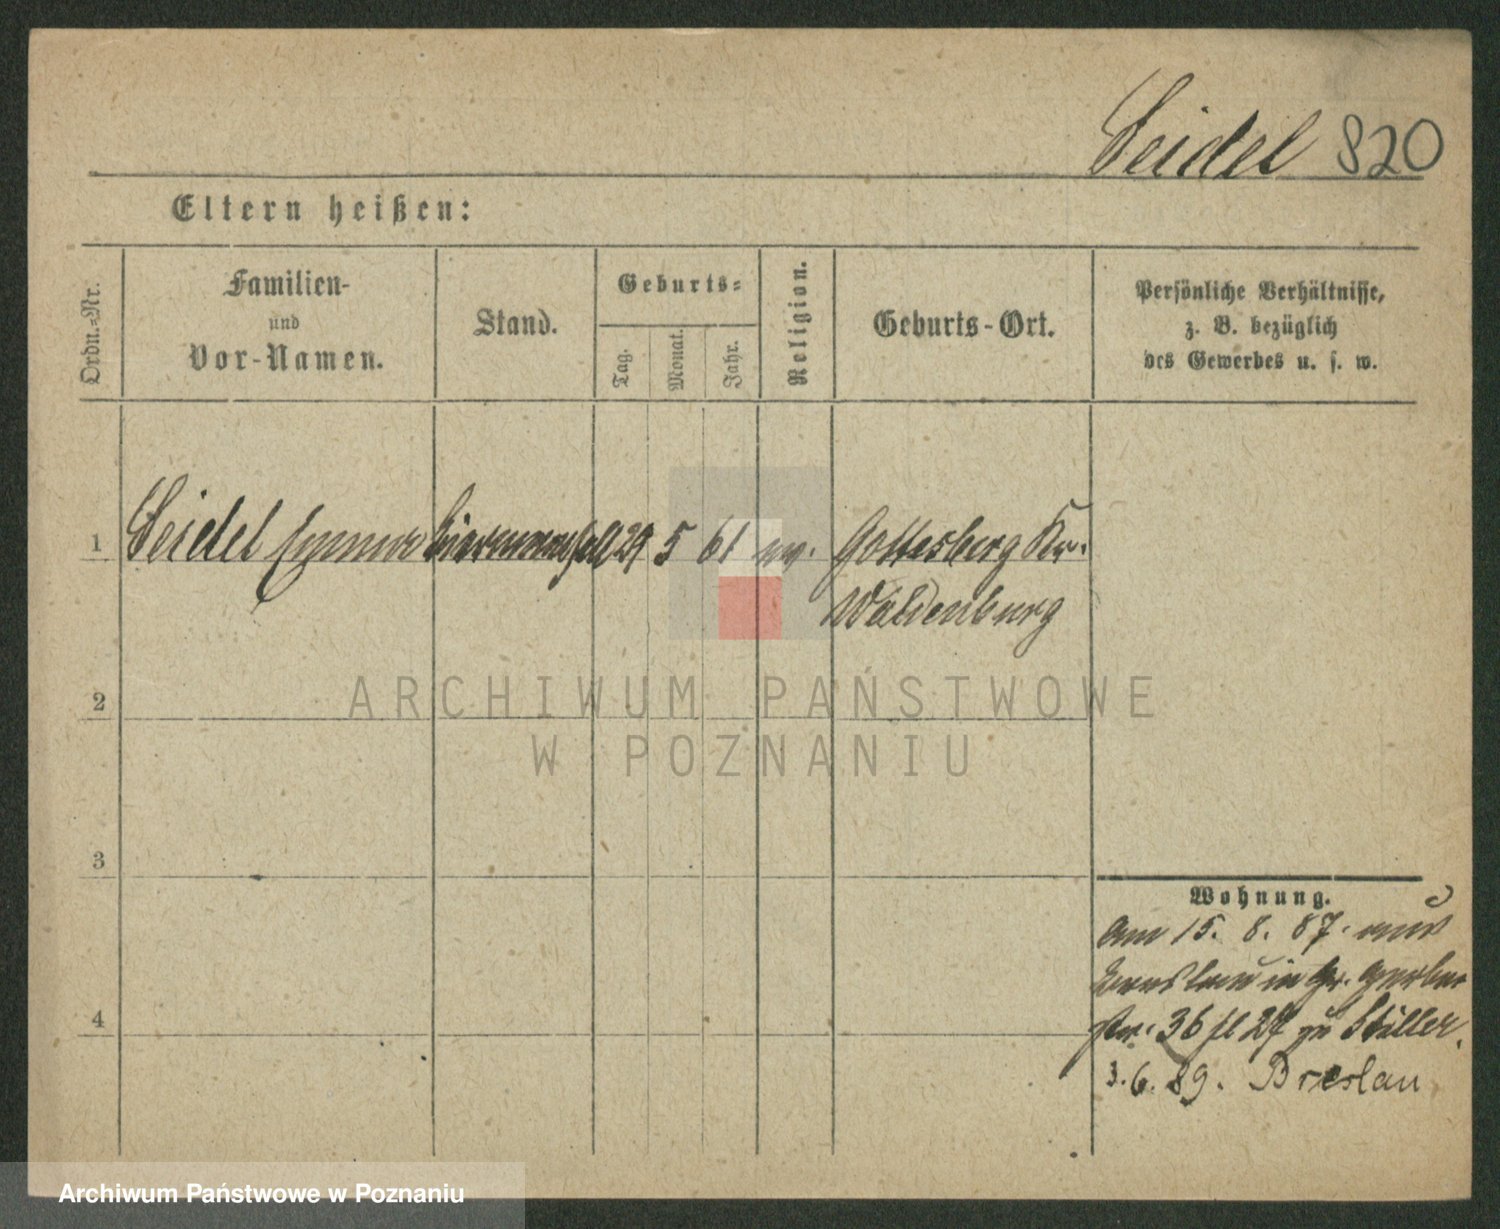 Seidel 820
Eltern heißen:
Ordn.-Nr.
Familien-
und
Vor-Namen.
Stand.
Geburts-
Tag.
Monat.
Jahr.
Religion.
Geburts-Ort.
Persönliche Verhältnisse,
z. B. bezüglich
des Gewerbes u. s. w.
1 Seidel Emma 29 5 61 ev. Gottesberg Kr.
Waldenburg
2
ARCHIWUM PAŃSTWOWE
W POZNANIU
3
Wohnung.
Am 15. 8. 87. aus
Breslau in Gr. Gerber
str. 36 zu Stiller.
4
3. 6. 89. Breslau
Archiwum Państwowe w Poznaniu